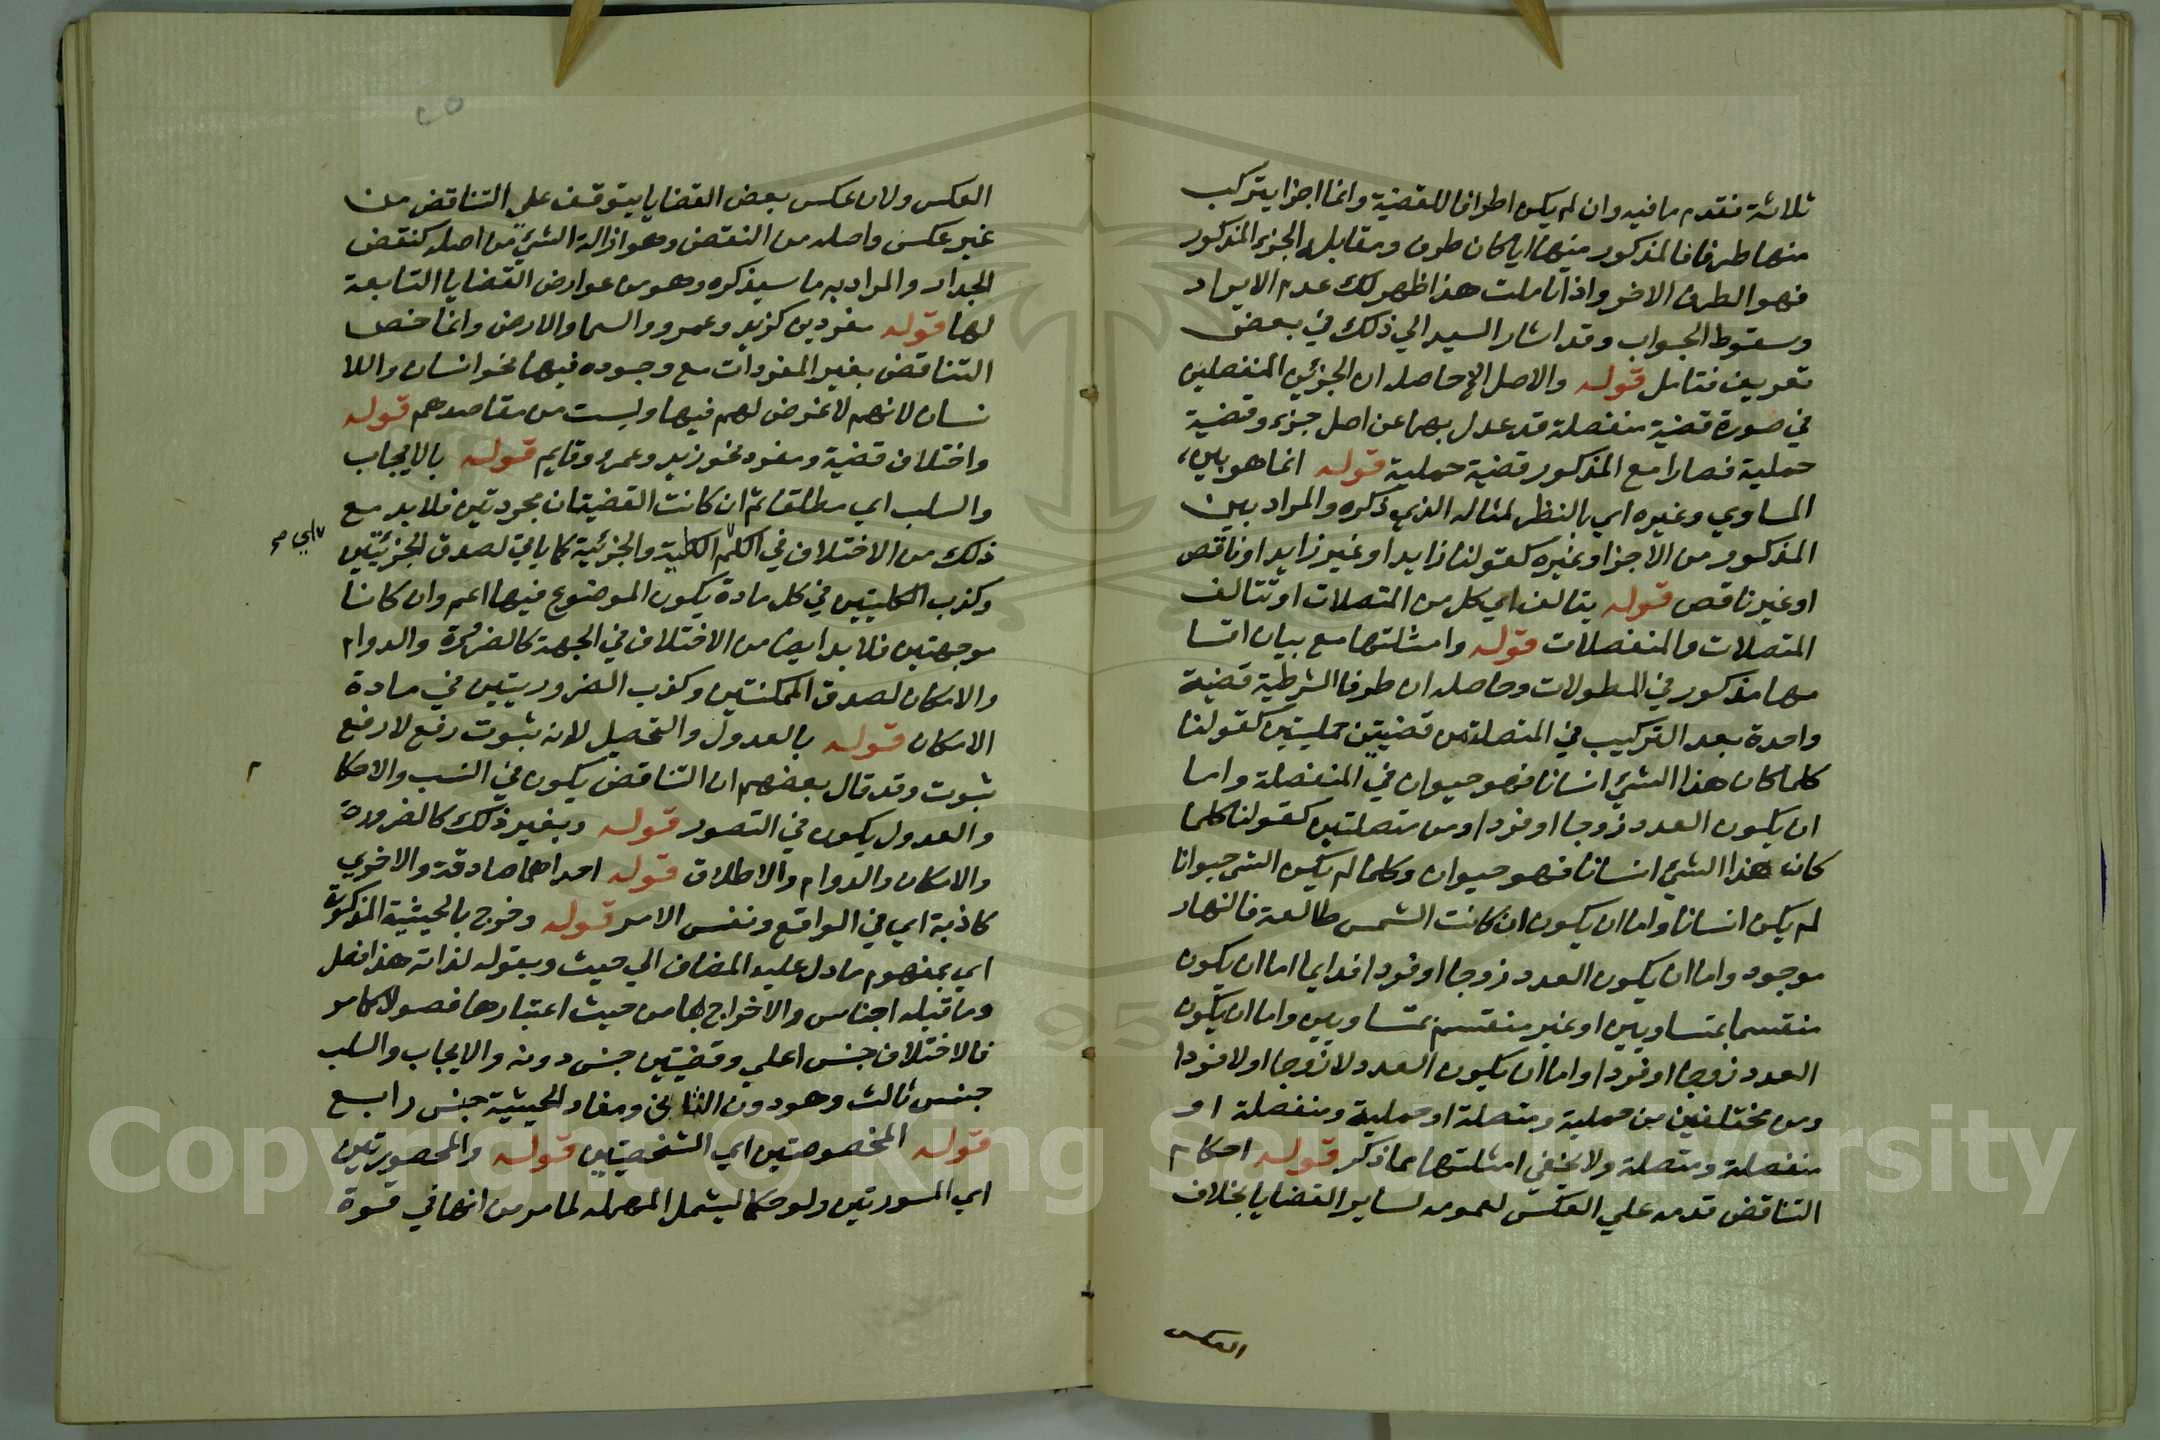 ثلاثة فتقدم ما فيه وان لم يكن اطرافا للقضية وانما اجزا يتركب
منها طرفا فالمذكور منها ايا كان طرف ومقابله الجزء المذكور
فهو الطرف الاخر واذا تاملت هذا ظهر لك عدم الايراد
وسقوط الجواب وقد اشار السيد الي ذلك في بعض
تعريف فتامل قوله والاصل الخ حاصله ان الجزئين المنفصلين
في صورة قضية منفصلة قد عدل بهما عن اصل جزء وقضية
حملية فصارا مع المذكور قضية حملية قوله انما هو بين
المساوي وغيره اي بالنظر لمثاله الذي ذكره والمراد بين
المذكور من الاجزا وغيره كقولنا زايد او غير زايد او ناقص
او غير ناقص قوله يتالف اي كل من المتصلات او تتالف
المتصلات والمنفصلات قوله وامثلتها مع بيان اقسا
مها مذكور في المطولات وحاصله ان طرفا الشرطية قضية
واحدة بعد التركيب في المتصلة من قضيتين حمليتين كقولنا
كلما كان هذا الشيء انسانا فهو حيوان في المنفصلة واما
ان يكون العدد زوجا او فردا ومن متصلتين كقولنا كلما
كان هذا الشيء انسانا فهو حيوان وكلما لم يكن الشي حيوانا
لم يكن انسانا واما ان يكون ان كانت الشمس طالعة فالنهار
موجود واما ان يكون العدد زوجا او فردا فدايما اما ان يكون
منقسما بمتساويين او غير منقسم بمتساويين واما ان يكون
العدد زوجا او فردا واما ان يكون العدد لا زوجا او لا فردا
ومن مختلفين من حملية ومتصلة او حملية ومنفصلة او
منفصلة ومتصلة ولا يخفي امثلتها مما ذكر قوله احكام
التناقض قدمه علي العكس لعمومه لساير القضايا بخلاف
العكس
العكس ولان عكس بعض القضايا يتوقف علي التناقض من
غير عكس واصله من النقض وهو ازالة الشيء من اصله كنقض
الجدار والمراد به ما سيذكره وهو من عوارض القضايا التابعة
لها قوله مفردين كزيد وعمرو والسما والارض وانما خص
التناقض بغير المفردات مع وجوده فيها نحو انسان واللا
نسان لانهم لا غرض لهم فيها وليست من مقاصدهم قوله
واختلاف قضية ومفرد نحو زيد وعمرو قايم قوله بالايجاب
والسلب اي مطلقا ثم ان كانت القضيتان مجردتين فلا بد مع
ذلك من الاختلاف في الكم الكلية والجزئية كما ياتي لصدق الجزئيتين
اي صح
وكذب الكليتين في كل مادة يكون الموضوع فيها اعم وان كانتا
موجهتين فلا بد ايضا من الاختلاف في الجهة كالضرورة والدوام
والامكان لصدق الممكنتين وكذب الضروريتين في مادة
الامكان قوله بالعدول والتحصيل لانه ثبوت رفع لا رفع
ثبوت وقد قال بعضهم ان التناقض يكون في النسب والاحكا
م
والعدول يكون في التصور قوله وبغير ذلك كالضرورة
والامكان والدوام والاطلاق قوله احداهما صادقة والاخري
كاذبة اي في الواقع ونفس الامر قوله وخرج بالحيثية المذكورة
اي بمفهوم ما دل عليه المضاف الي حيث وبقوله لذاته هذا فصل
وما قبله اجناس والاخراج بها من حيث اعتبارها فصولا كما مر
فالاختلاف جنس اعلي وقضيتين جنس دونه والايجاب والسلب
جنس ثالث وهو دون الثاني ومفاد الحيثية جنس رابع
قوله المخصوصتين اي الشخصيتين قوله والمحصورتين
اي المسورتين ولو حكما ليشمل المهملة لما مر من انها في قوة
Copyright © King Saud University